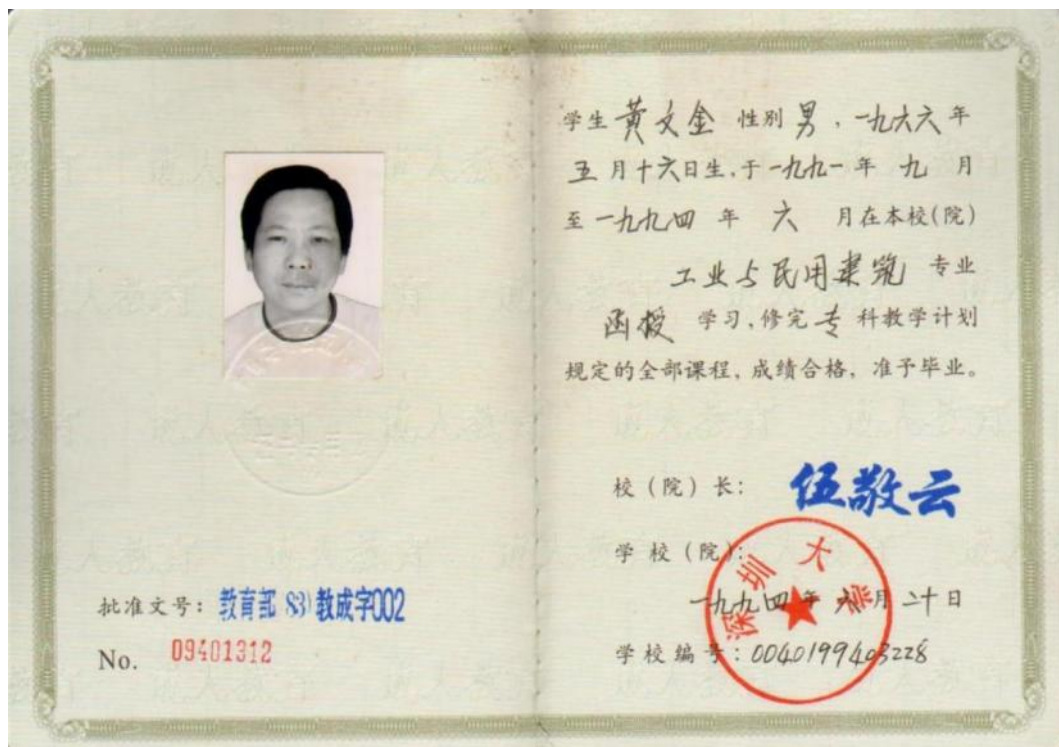 批准文号：教育部(83)教成字002
No. 09401312
学生 黄文金 性别 男，一九六六年
五月十六日生，于一九九一年 九 月
至一九九四 年 六 月在本校(院)
工业与民用建筑 专业
函授 学习，修完 专 科教学计划
规定的全部课程，成绩合格，准予毕业。
校（院）长： 伍敬云
学校（院）：
深圳大学
一九九四年 六月 二十日
学校编号：0040199403228
成人教育